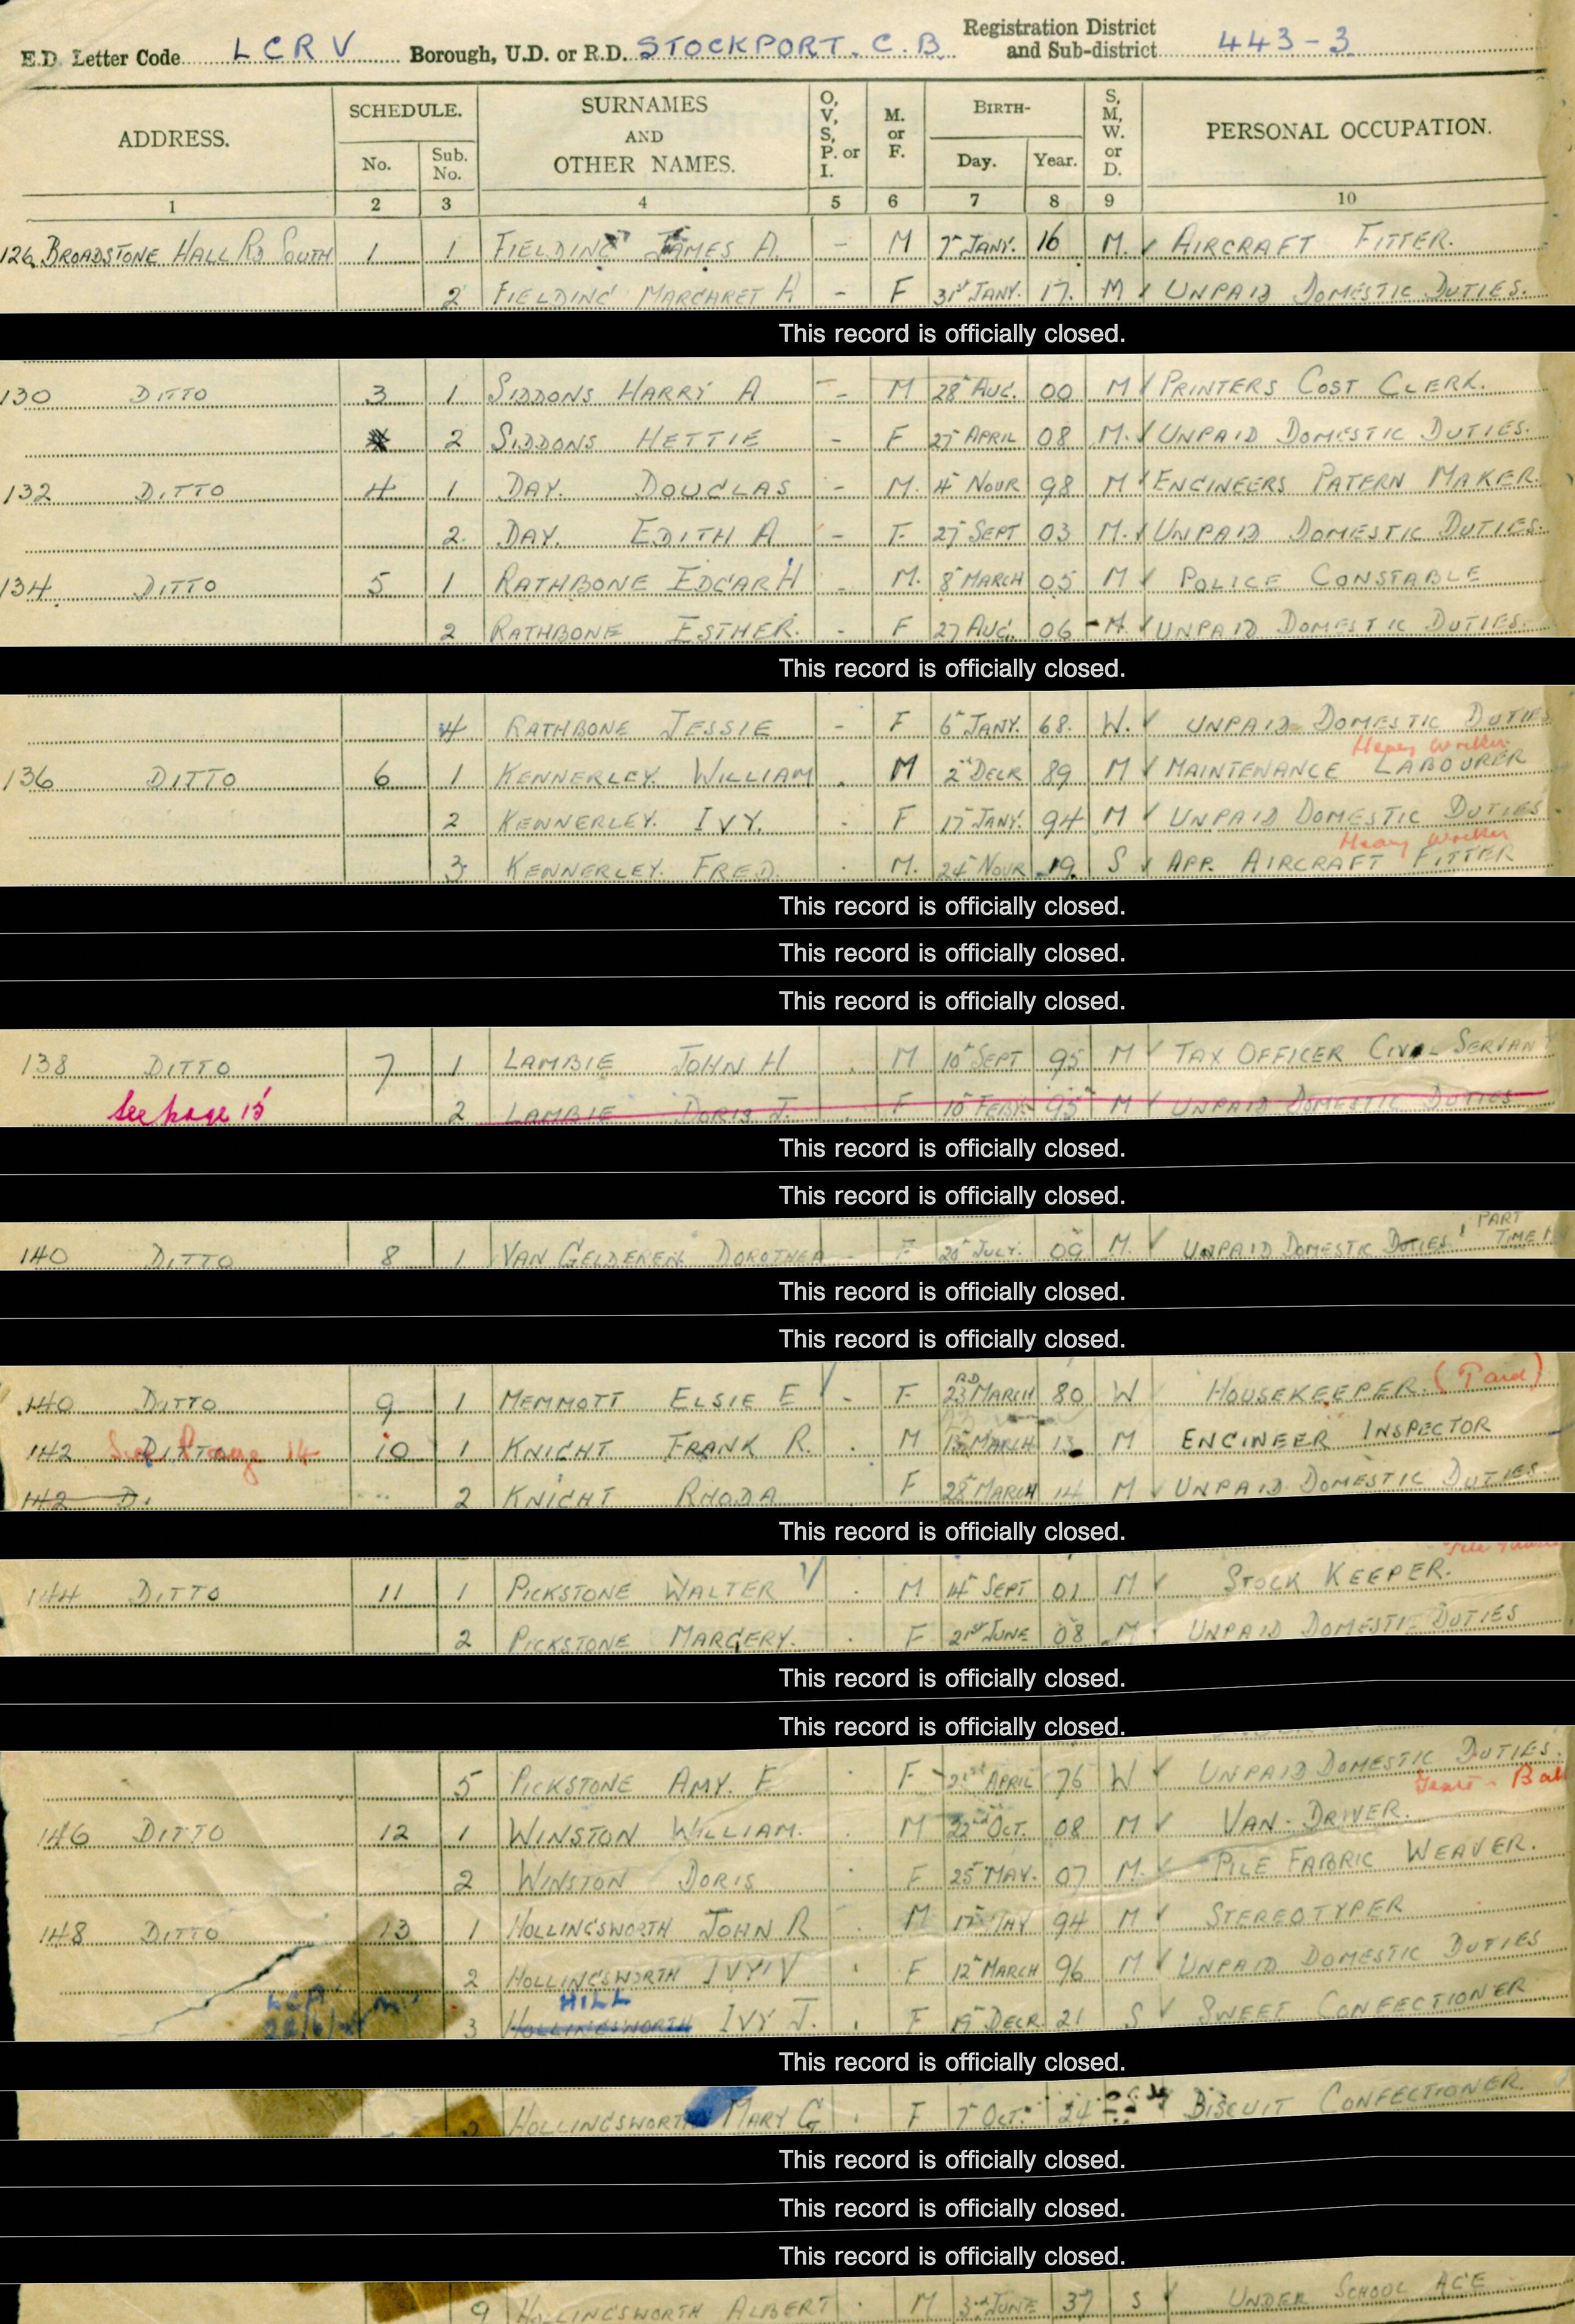 E.D. Letter Code LCRV Borough, U.D. or R.D. STOCKPORT. C.B. Registration District and Sub-district 443-3
ADDRESS. SCHEDULE. No. Sub. No. SURNAMES AND OTHER NAMES. O, V, S, P. or I. M. or F. BIRTH- Day. Year. S, M, W. or D. PERSONAL OCCUPATION.
1 2 3 4 5 6 7 8 9 10
126 BROADSTONE HALL RD SOUTH 1 1 FIELDING JAMES A. - M 7th JANY. 16 M. AIRCRAFT FITTER.
2 FIELDING MARGARET H - F 31st JANY. 17. M UNPAID DOMESTIC DUTIES.
This record is officially closed.
130 DITTO 3 1 SIDDONS HARRY A - M 28th AUG. 00 M PRINTERS COST CLERK.
2 SIDDONS HETTIE - F 27 APRIL 08 M. UNPAID DOMESTIC DUTIES.
132 DITTO 4 1 DAY. DOUGLAS - M. 4th NOVR 98 M ENGINEERS PATERN MAKER.
2. DAY. EDITH A - F. 27 SEPT 03 M. UNPAID DOMESTIC DUTIES.
134 DITTO 5 1 RATHBONE EDGAR H - M. 8th MARCH 05 M POLICE CONSTABLE
2 RATHBONE ESTHER. - F 27 AUG. 06 M. UNPAID DOMESTIC DUTIES.
This record is officially closed.
4 RATHBONE JESSIE - F 6th JANY. 68. W. UNPAID DOMESTIC DUTIES
Heavy Worker
136 DITTO 6 1 KENNERLEY. WILLIAM M 2nd DECR 89 M MAINTENANCE LABOURER
2 KENNERLEY. IVY. F 17th JANY. 94 M UNPAID DOMESTIC DUTIES.
Heavy Worker
3 KENNERLEY. FRED. M. 24th NOVR 19. S APP. AIRCRAFT FITTER
This record is officially closed.
This record is officially closed.
This record is officially closed.
138 DITTO 7 1 LAMBIE JOHN H M 10th SEPT 95 M TAX OFFICER CIVIL SERVANT
See page 15 2 LAMBIE DORIS J. F 10th FEBY. 95 M UNPAID DOMESTIC DUTIES
This record is officially closed.
This record is officially closed.
140 DITTO 8 1 VAN GELDEREN DOROTHEA - F 20th JULY. 09 M. UNPAID DOMESTIC DUTIES PART TIME
This record is officially closed.
This record is officially closed.
140 DITTO 9 1 MEMMOTT ELSIE E - F 23RD MARCH 80 W HOUSEKEEPER. (Paid)
142 DITTO See Page 14 10 1 KNIGHT FRANK R. M MARCH 13 M ENGINEER INSPECTOR
142 D. 2 KNIGHT RHODA F 28th MARCH 14 M UNPAID DOMESTIC DUTIES.
This record is officially closed.
144 DITTO 11 1 PICKSTONE WALTER M 14th SEPT 01 M STOCK KEEPER.
2 PICKSTONE MARGERY. F 21st JUNE 08 M UNPAID DOMESTIC DUTIES
This record is officially closed.
This record is officially closed.
5 PICKSTONE AMY. E F 21st APRIL 76 W UNPAID DOMESTIC DUTIES.
146 DITTO 12 1 WINSTON WILLIAM. M 22nd OCT. 08 M VAN DRIVER.
2 WINSTON DORIS F 25th MAY. 07 M. PILE FABRIC WEAVER.
148 DITTO 13 1 HOLLINGSWORTH JOHN R M 17th MAY 94 M STEREOTYPER
2 HOLLINGSWORTH IVY V F 12th MARCH 96 M UNPAID DOMESTIC DUTIES
HILL
3 HOLLINGSWORTH IVY J. F 19th DECR. 21 S SWEET CONFECTIONER
This record is officially closed.
HOLLINGSWORTH MARY G F 7th OCT. 24 BISCUIT CONFECTIONER
This record is officially closed.
This record is officially closed.
This record is officially closed.
9 HOLLINGSWORTH ALBERT M 3rd JUNE 37 S UNDER SCHOOL AGE